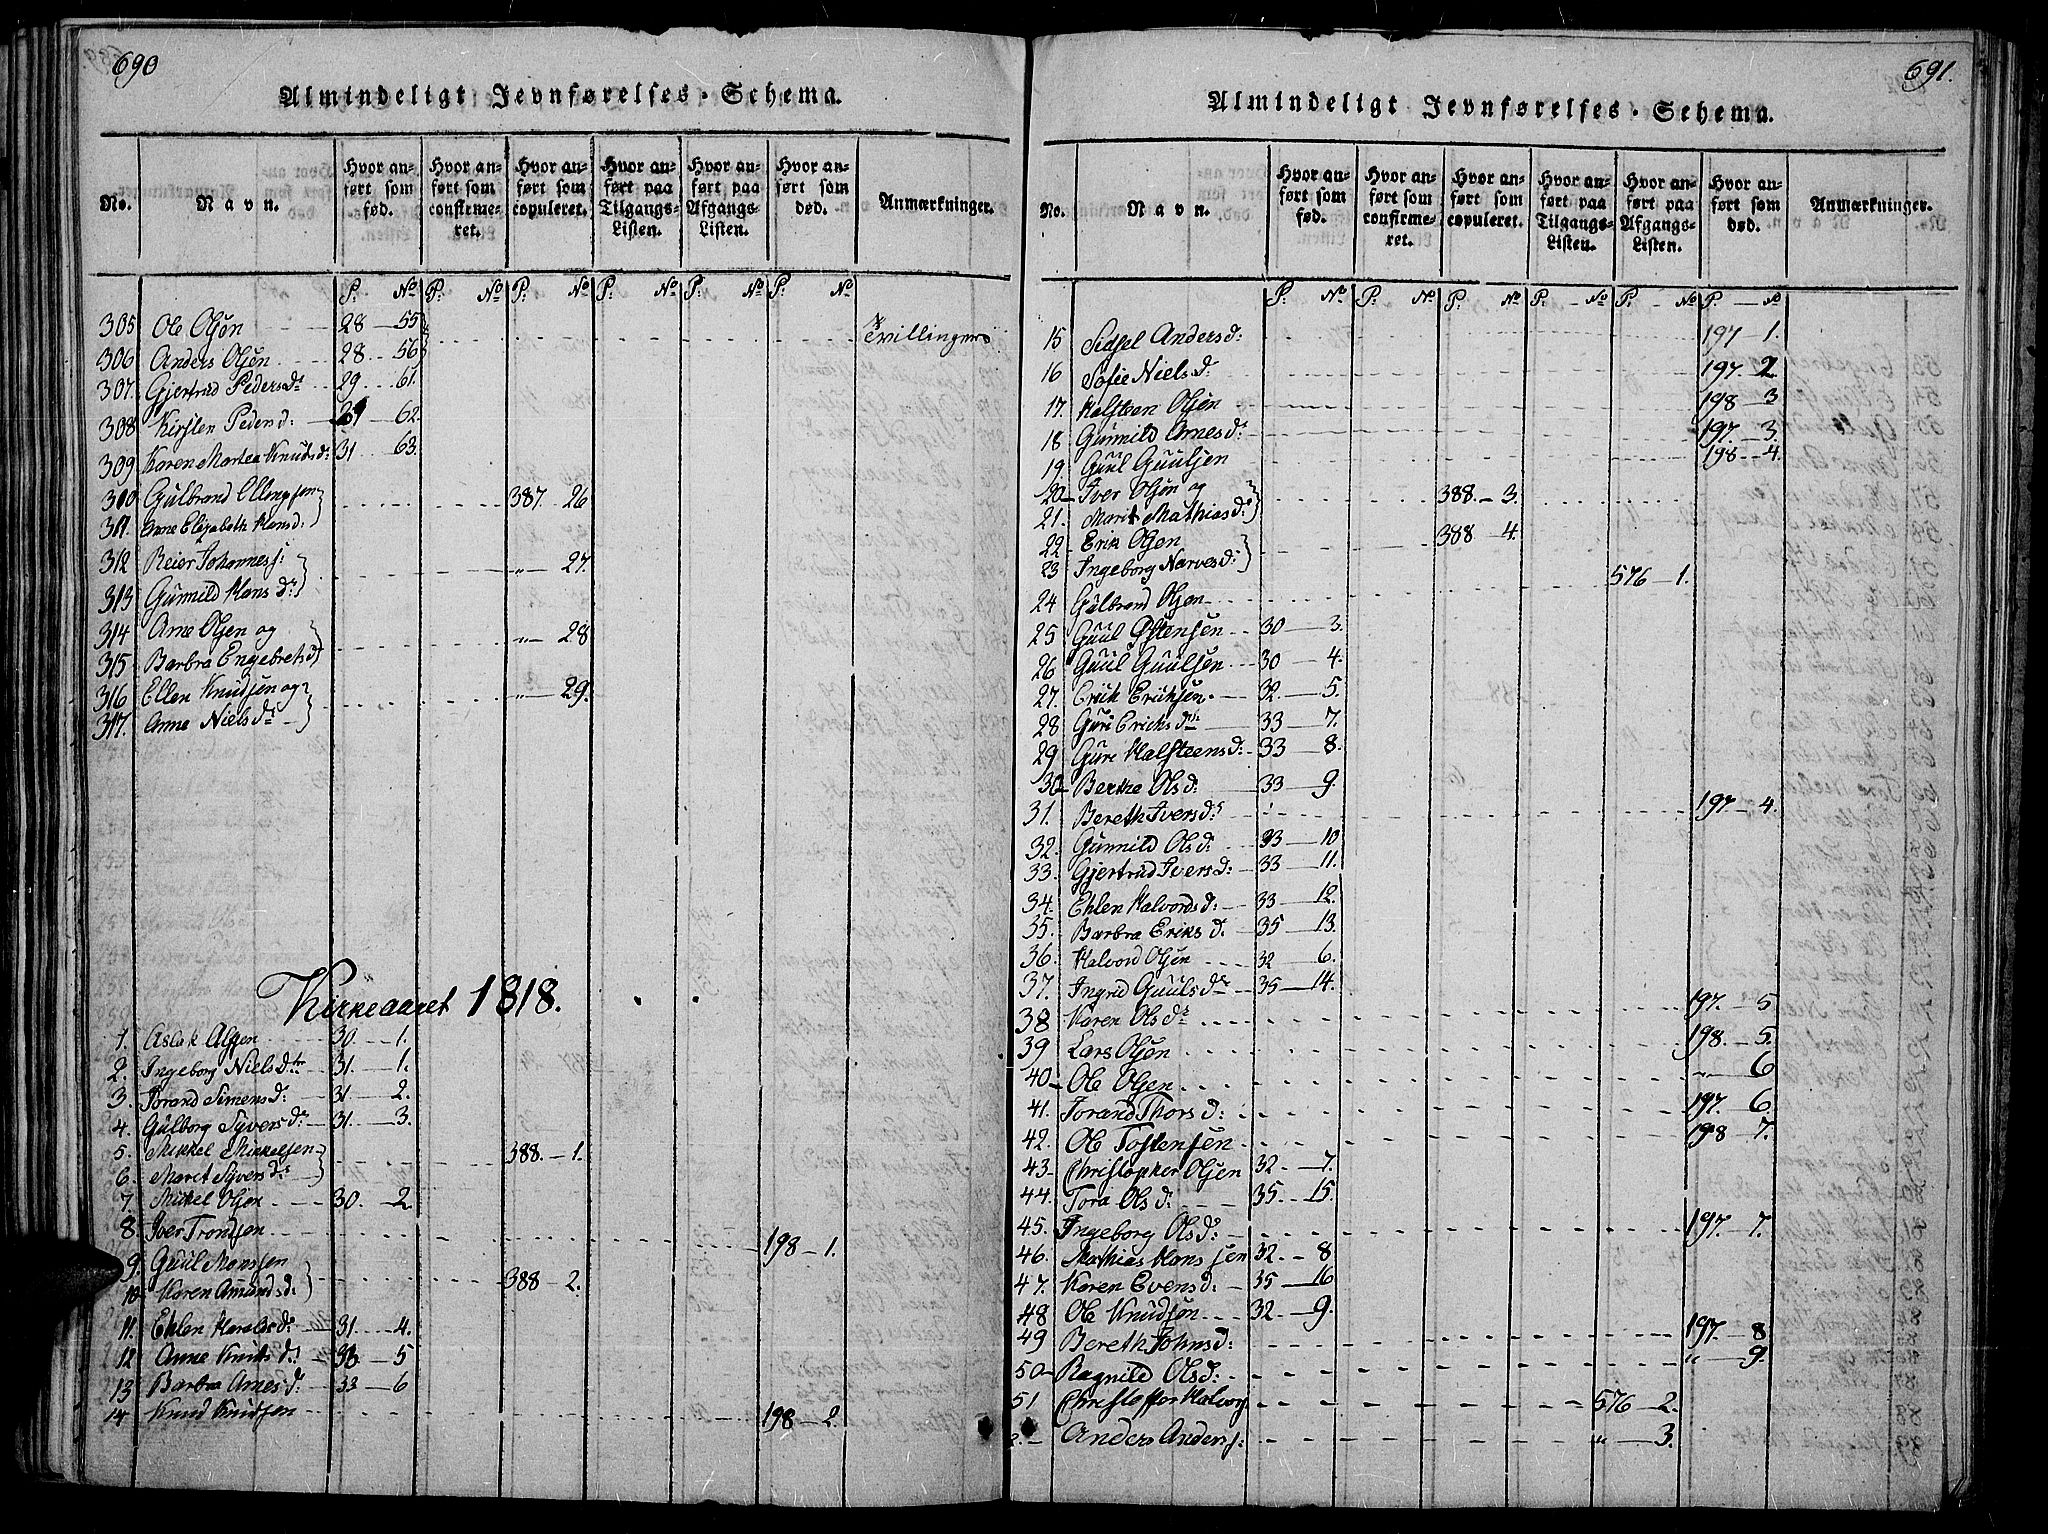 690
Almindeligt Jevnførelses-Schema.
No. Navn. Hvor anført som fød. Hvor anført som confirmeret. Hvor anført som copuleret. Hvor anført paa Tilgangs-Listen. Hvor anført paa Afgangs-Listen. Hvor anført som død. Anmærkninger.
P. No P. No P. No P. No P. No P. No
305 Ole Olsøn 28 - 55 Tvillinger
306 Anders Olsøn 28 - 56
307. Gjertrud Pedersd: 29. 61.
308 Kirsten Pedersd: 29 - 62.
309 Karen Martea Knudsd: 31 63.
310 Gulbrand Ellingsen 387. - 26
311. Anne Elizabeth Hansd:
312 Reier Johanness: " - 27.
313 Gunnild Hansd:
314 Arne Olsen og " - 28
315 Barbra Engebretsd
316 Ellen Knudsen og " - 29.
317. Anne Nielsd:
Kirkeaaret 1818.
1. Aslak Alfsen 30. - 1.
2. Ingeborg Nielsdtr 31. - 1.
3. Jorand Simensd: 31 - 2.
4. Gulborg Syversd: 31. - 3.
5. Mikkel Mikkelsen 388. - 1.
6. Marit Syversd:
7. Mikkel Olsen 30. - 2
8. Iver Trondsen 198 - 1.
9. Guul Monssen 388 - 2.
10. Karen Amundsd:
11. Ehlen Haraldsd: 31. - 4.
12 Anne Knutsd: 33. - 5
13 Barbra Arnesd: 33 - 6
14 Knud Knudsen 198 - 2.
691.
Almindeligt Jevnførelses-Schema.
No. Navn. Hvor anført som fød. Hvor anført som confirmeret. Hvor anført som copuleret. Hvor anført paa Tilgangs-Listen. Hvor anført paa Afgangs-Listen. Hvor anført som død. Anmærkninger.
P. No P. No P. No P. No P. No P. No
15 Sidsel Andersd: 197 - 1.
16 Sofie Nielsd: 197. - 2.
17. Halsteen Olsen 198 - 3
18 Gunnild Arnesd: 197. - 3.
19 Guul Guulsen 198 - 4.
20 Iver Olsøn og 388. - 3.
21. Marit Mathiasd:
22 Erik Olsen 388 - 4.
23 Ingeborg Narvesd:
24 Gulbrand Olsen 576 - 1.
25 Guul Østensen 30 - 3.
26 Guul Guulsen 30 - 4.
27. Erick Ericksen 32. - 5.
28 Guri Ericksdtr 33 - 7.
29 Guri Halsteensd: 33 - 8.
30 Berthe Olsd: 33 - 9.
31. Bereth Iversd: 197 - 4.
32. Gunnild Olsd: 33 - 10
33. Gjertrud Iversd: 33 - 11.
34. Ehlen Halvordsd: 33 - 12.
35. Barbra Eriksd. 35 - 13.
36. Halvord Olsøn 32 - 6.
37. Ingrid Guulsd: 35 - 14.
38 Karen Olsd: 197. - 5
39 Lars Olsøn 198. - 5.
40 Ole Olsen " - 6
41. Jorand Thorsd: 197. - 6.
42. Ole Tostensen 198 - 7.
43 Christopher Olsen 32. - 7.
44. Tora Olsd: 35. - 15.
45. Ingeborg Olsd: 197. - 7.
46. Mathias Hanssen 32. - 8
47. Karen Evensd: 35 - 16
48 Ole Knudsøn 32. - 9.
49 Bereth Johnsd: 197. - 8
50 Ragnild Olsd: " - 9.
51 Christoffer Halvors 576 - 2.
2. Anders Anders: " - 3.